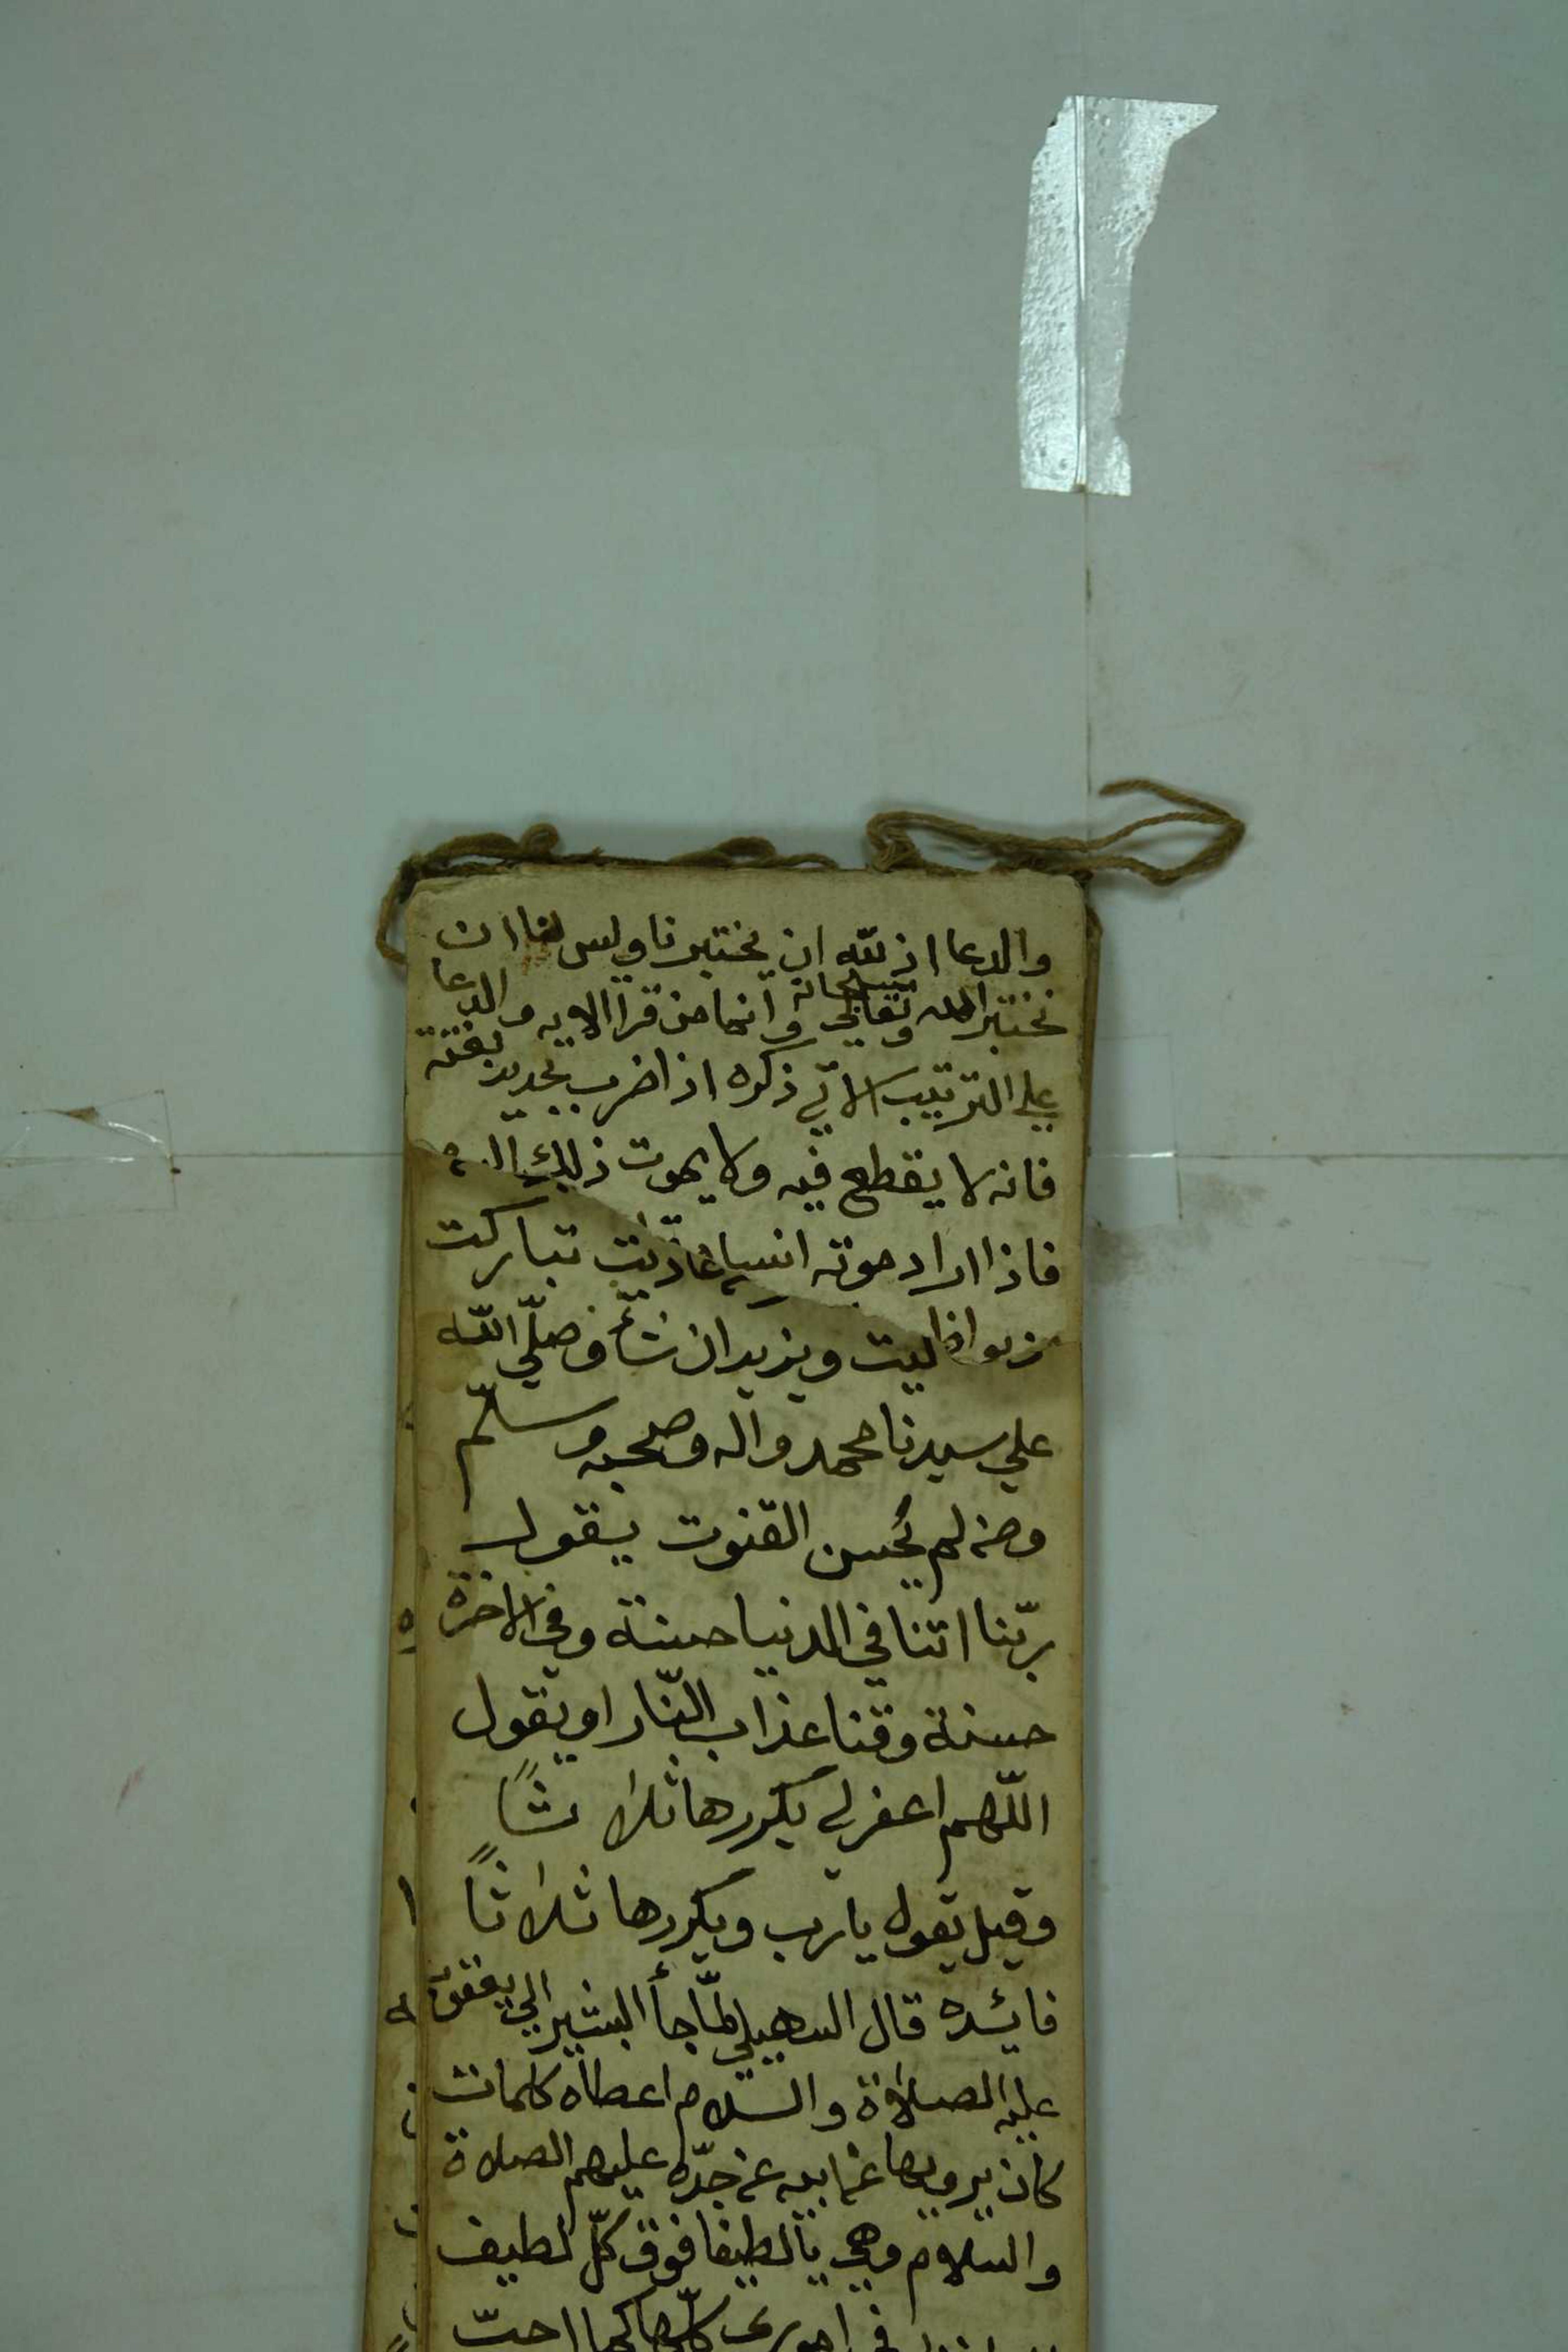 والدعا اذ لله ان يختبرنا وليس لنا ان
نختبر الله سبحانه وتعالي وانما من قرا الايه والدعا
علي الترتيب الاتي ذكره اذا ضرب بحديد بغتة
فانه لا يقطع فيه ولا يموت ذلك
فاذا اراد موته تباركت
ليت ويزيد ان شأ وصلّي اللّه
علي سيدنا محمد واله وصحبه وسلّم
ومن لم يُحسن القنوت يقول
ربّنا اتنا في الدنيا حسنة وفي الاخرة
حسنة وقنا عذاب النّار او يقول
اللّهم اغفر لي يكررها ثلاثاً
وقيل يقول يارب ويكررها ثلاثاً
فائده قال السهيلي لمّا جأ البشير الي يعقوب
عليه الصلاة والسّلام اعطاه كلمات
كان يرويها عن ابيه عن جدّه عليهم الصلاة
والسلام وهي يالطيفا فوق كلّ لطيف
في اموري كلّها كما احبّ